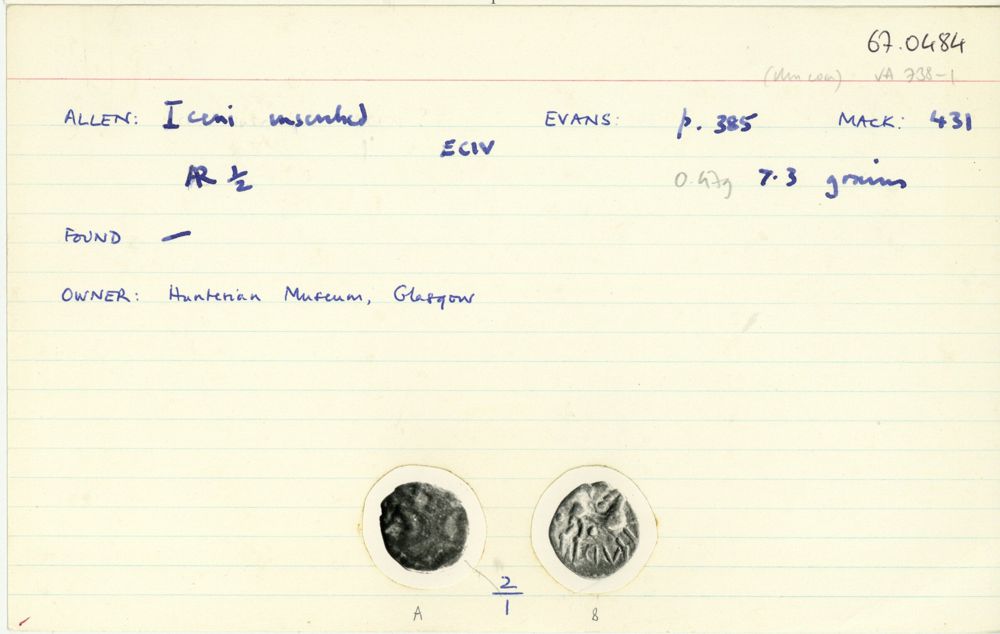 67.0484
(Unicorn) VA 738-1
ALLEN: Iceni inscribed EVANS: p. 385 MACK: 431
ECIV
AR ½ 0.47g 7.3 grains
FOUND —
OWNER: Hunterian Museum, Glasgow
2
1
A B